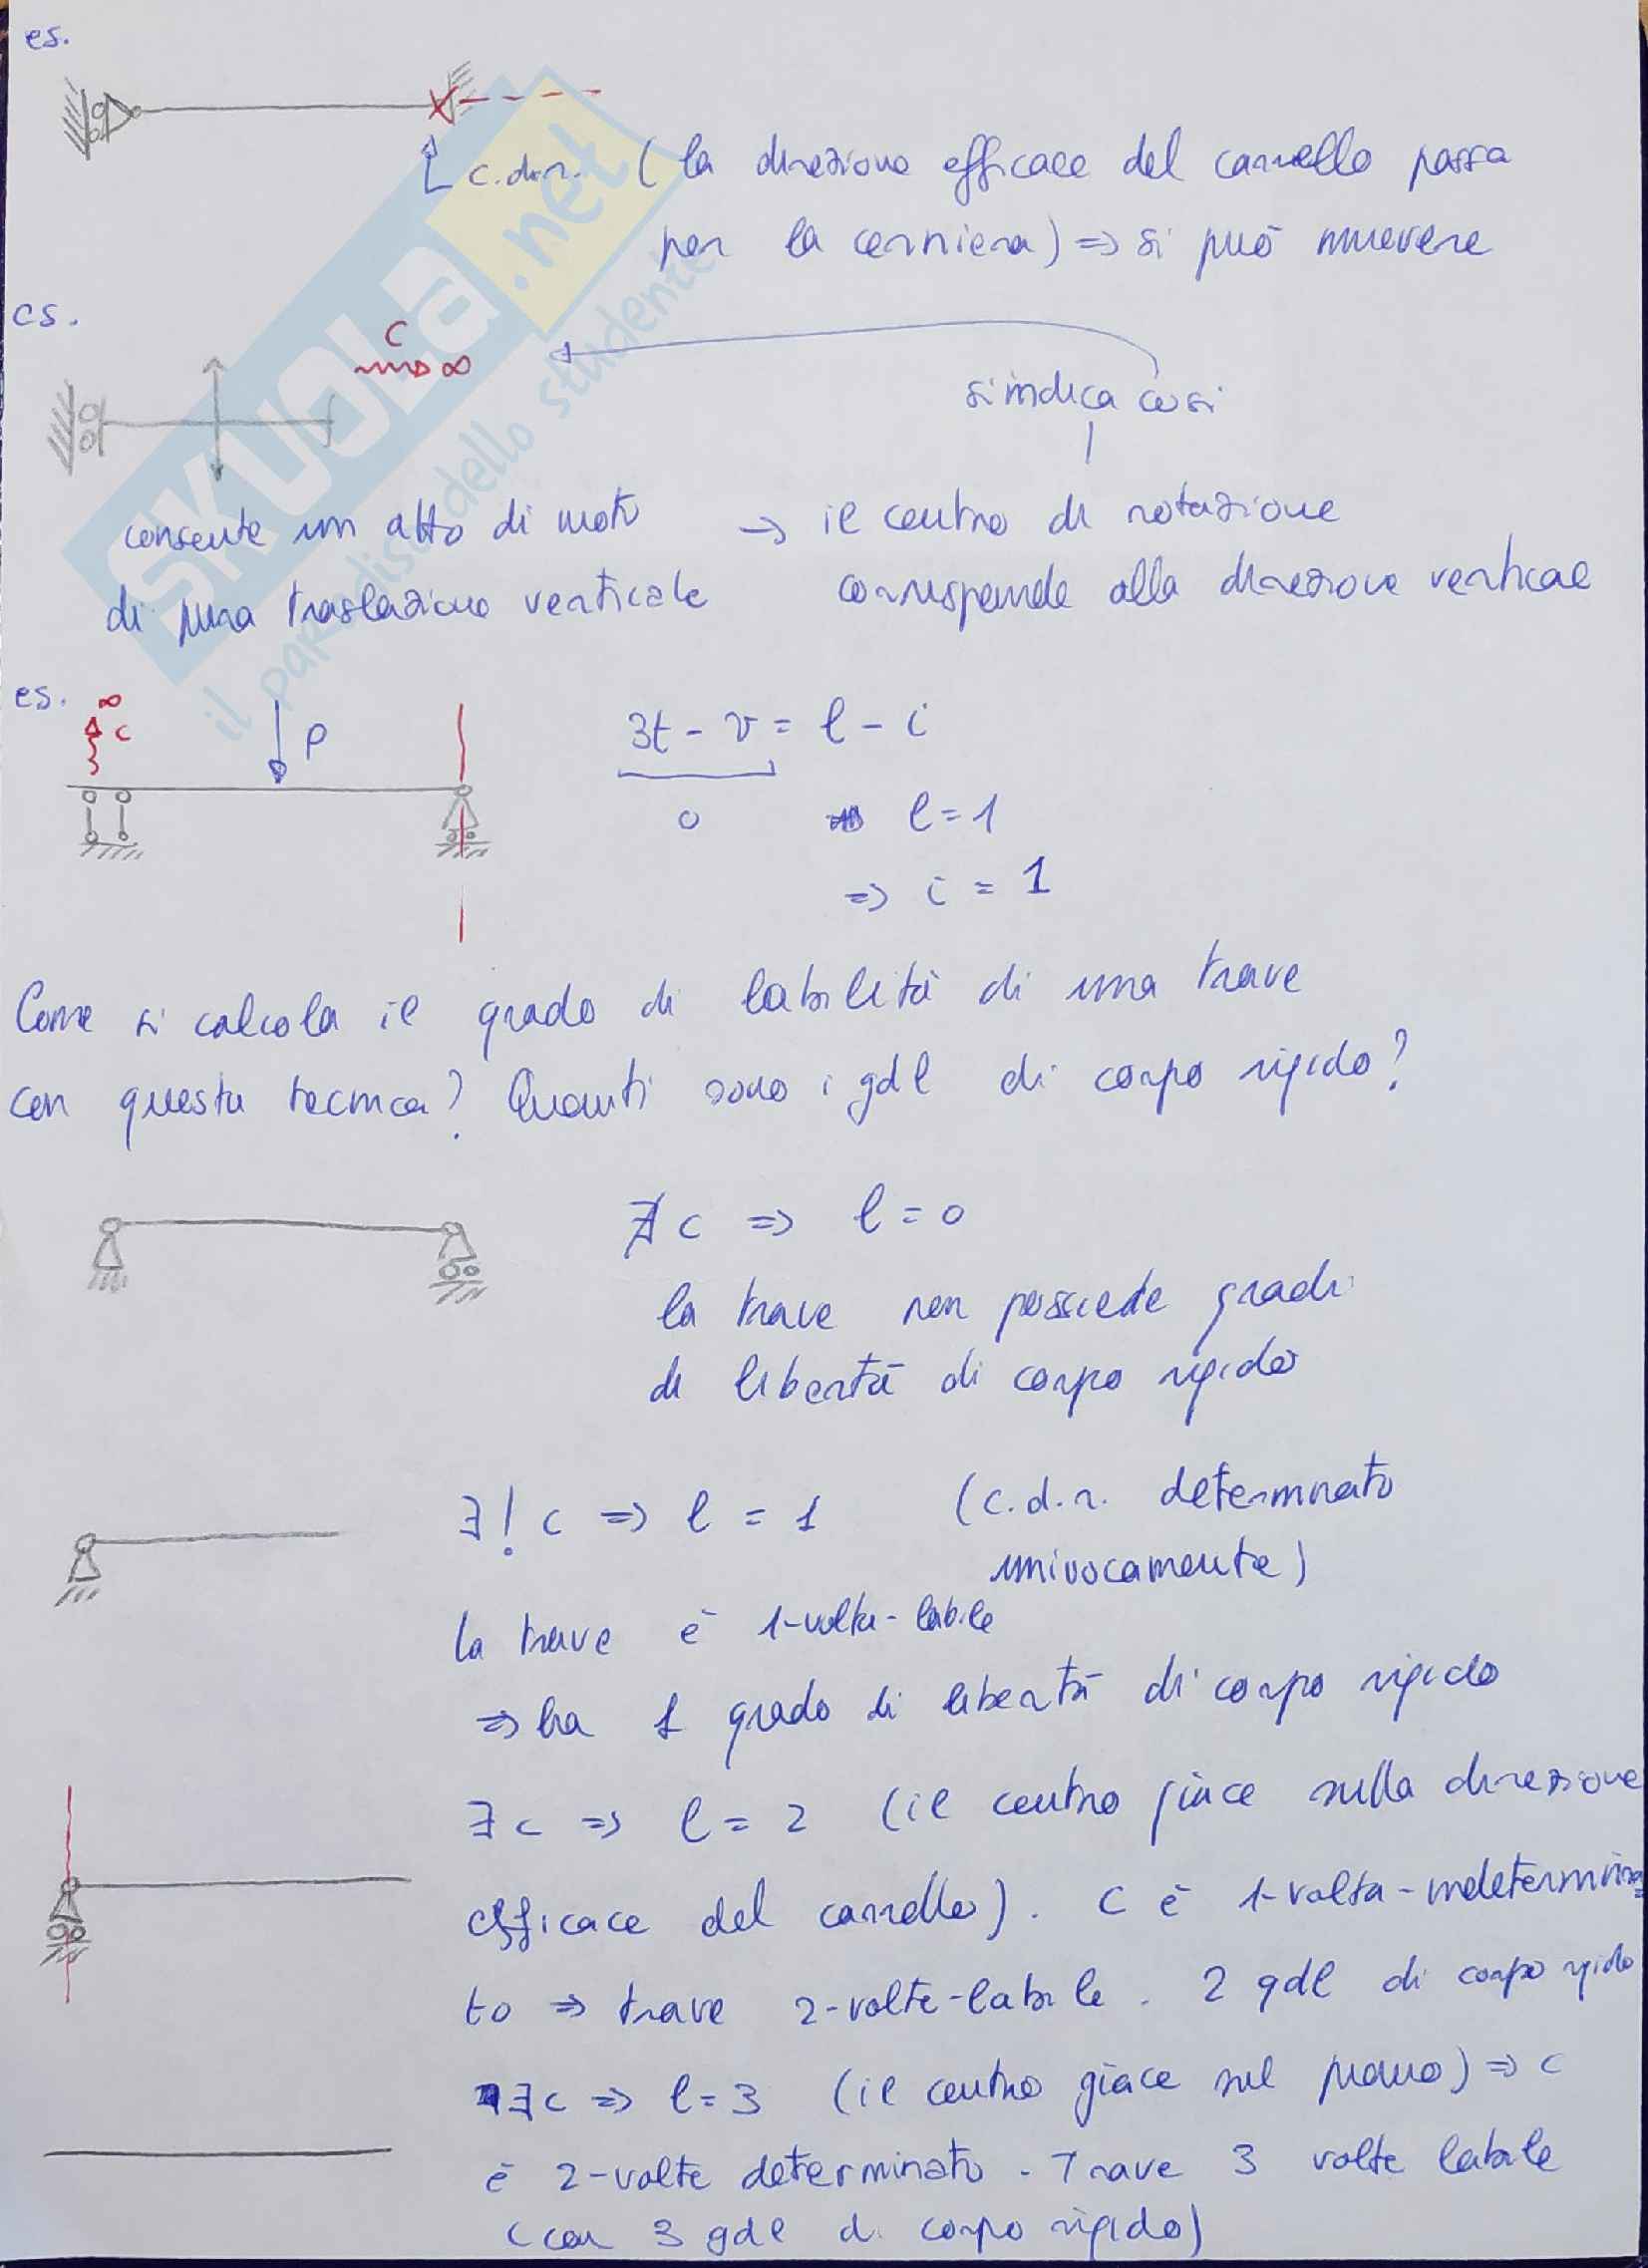 es.
c.d.r. (la direzione efficace del carrello passa
per la cerniera) => si può muovere
es.
C
∞
si indica così
consente un atto di moto -> il centro di rotazione
di pura traslazione verticale corrisponde alla direzione verticae
es. ∞
c P
3t - v = l - i
0 l = 1
=> i = 1
Come si calcola il grado di labilità di una trave
con questa tecnica? Quanti sono i gdl di corpo rigido?
∄ c => l = 0
la trave non possiede gradi
di libertà di corpo rigido
∃! c => l = 1 (c.d.r. determinato
univocamente)
la trave è 1-volta-labile
=> ha 1 grado di libertà di corpo rigido
∃ c => l = 2 (il centro giace sulla direzione
efficace del carrello). C è 1-volta-indetermina
to => trave 2-volte-labile. 2 gdl di corpo rigido
∃ c => l = 3 (il centro giace sul piano) => c
è 2-volte determinato. Trave 3 volte labile
(con 3 gdl di corpo rigido)
SKUOLA.net
il paradiso dello studente